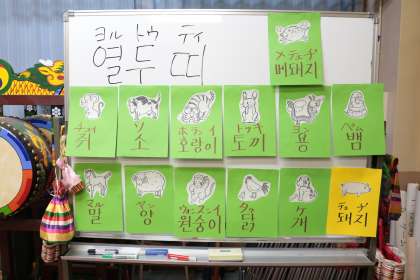 ヨル トゥ ティ
열두 띠
メテェヂ
메돼지
チュイ
쥐
ソ
소
ホランイ
호랑이
トッキ
토끼
ヨン
용
ペム
뱀
マル
말
ヤン
양
ウォンスンイ
원숭이
タㇰ
닭
ケ
개
テェヂ
돼지